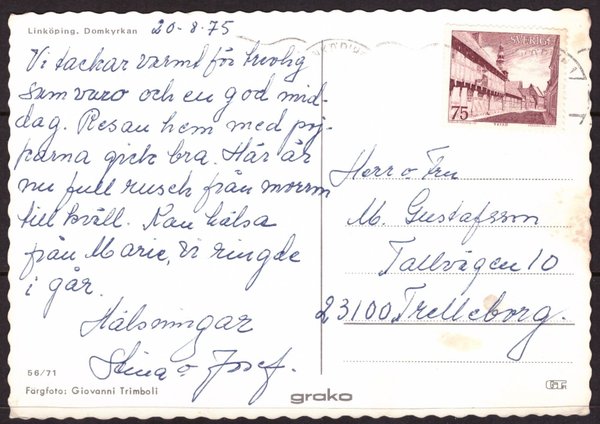 Linköping. Domkyrkan 20-8.75
Vi tackar varmt för trevlig
samvaro och en god mid-
dag. Resan hem med poj-
karna gick bra. Här är
nu full rusch från morron
till kväll. Kan hälsa
från Marie, Vi ringde
i går.
Hälsningar
Stina o Josef.
56/71
Färgfoto: Giovanni Trimboli
grako
SVERIGE
75
Herr o Fru
M. Gustafsson
Tallvägen 10
23100 Trelleborg.